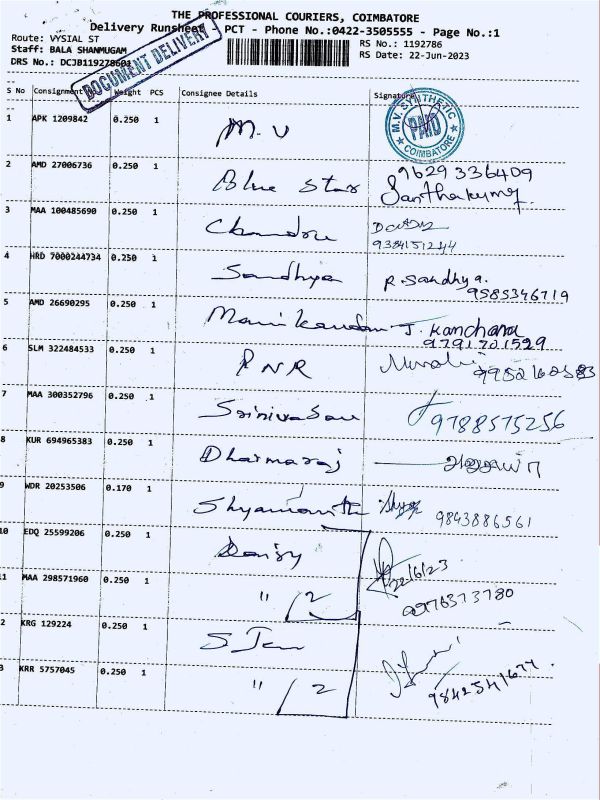 THE PROFESSIONAL COURIERS, COIMBATORE
Delivery Runsheet - PCT - Phone No.:0422-3505555 - Page No.:1
Route: VYSIAL ST
RS No.: 1192786
Staff: BALA SHANMUGAM
RS Date: 22-Jun-2023
DRS No.: DCJB1192786
DOCUMENT DELIVERY
S No Consignment Weight PCS Consignee Details Signature
1 APK 1209842 0.250 1 M.V
M.V. SYNTHETIC
PAID
COIMBATORE
9629336409
2 AMD 27006736 0.250 1 Blue Star Santhakumar
3 MAA 100485690 0.250 1
4 HRD 7000244734 0.250 1 Sandhya R. Sandhya.
9585346719
5 AMD 26690295 0.250 1 Manikandan J. Kanchana
9791701529
6 SLM 322484533 0.250 1 PNR
7 MAA 300352796 0.250 1 Srinivasan 9788575256
8 KUR 694965383 0.250 1 Dharmaraj
9 WDR 20253506 0.170 1 9843886561
10 EDQ 25599206 0.250 1 Daisy
22/6/23
11 MAA 298571960 0.250 1 " /2
2 KRG 129224 0.250 1
3 KRR 5757045 0.250 1 " /2